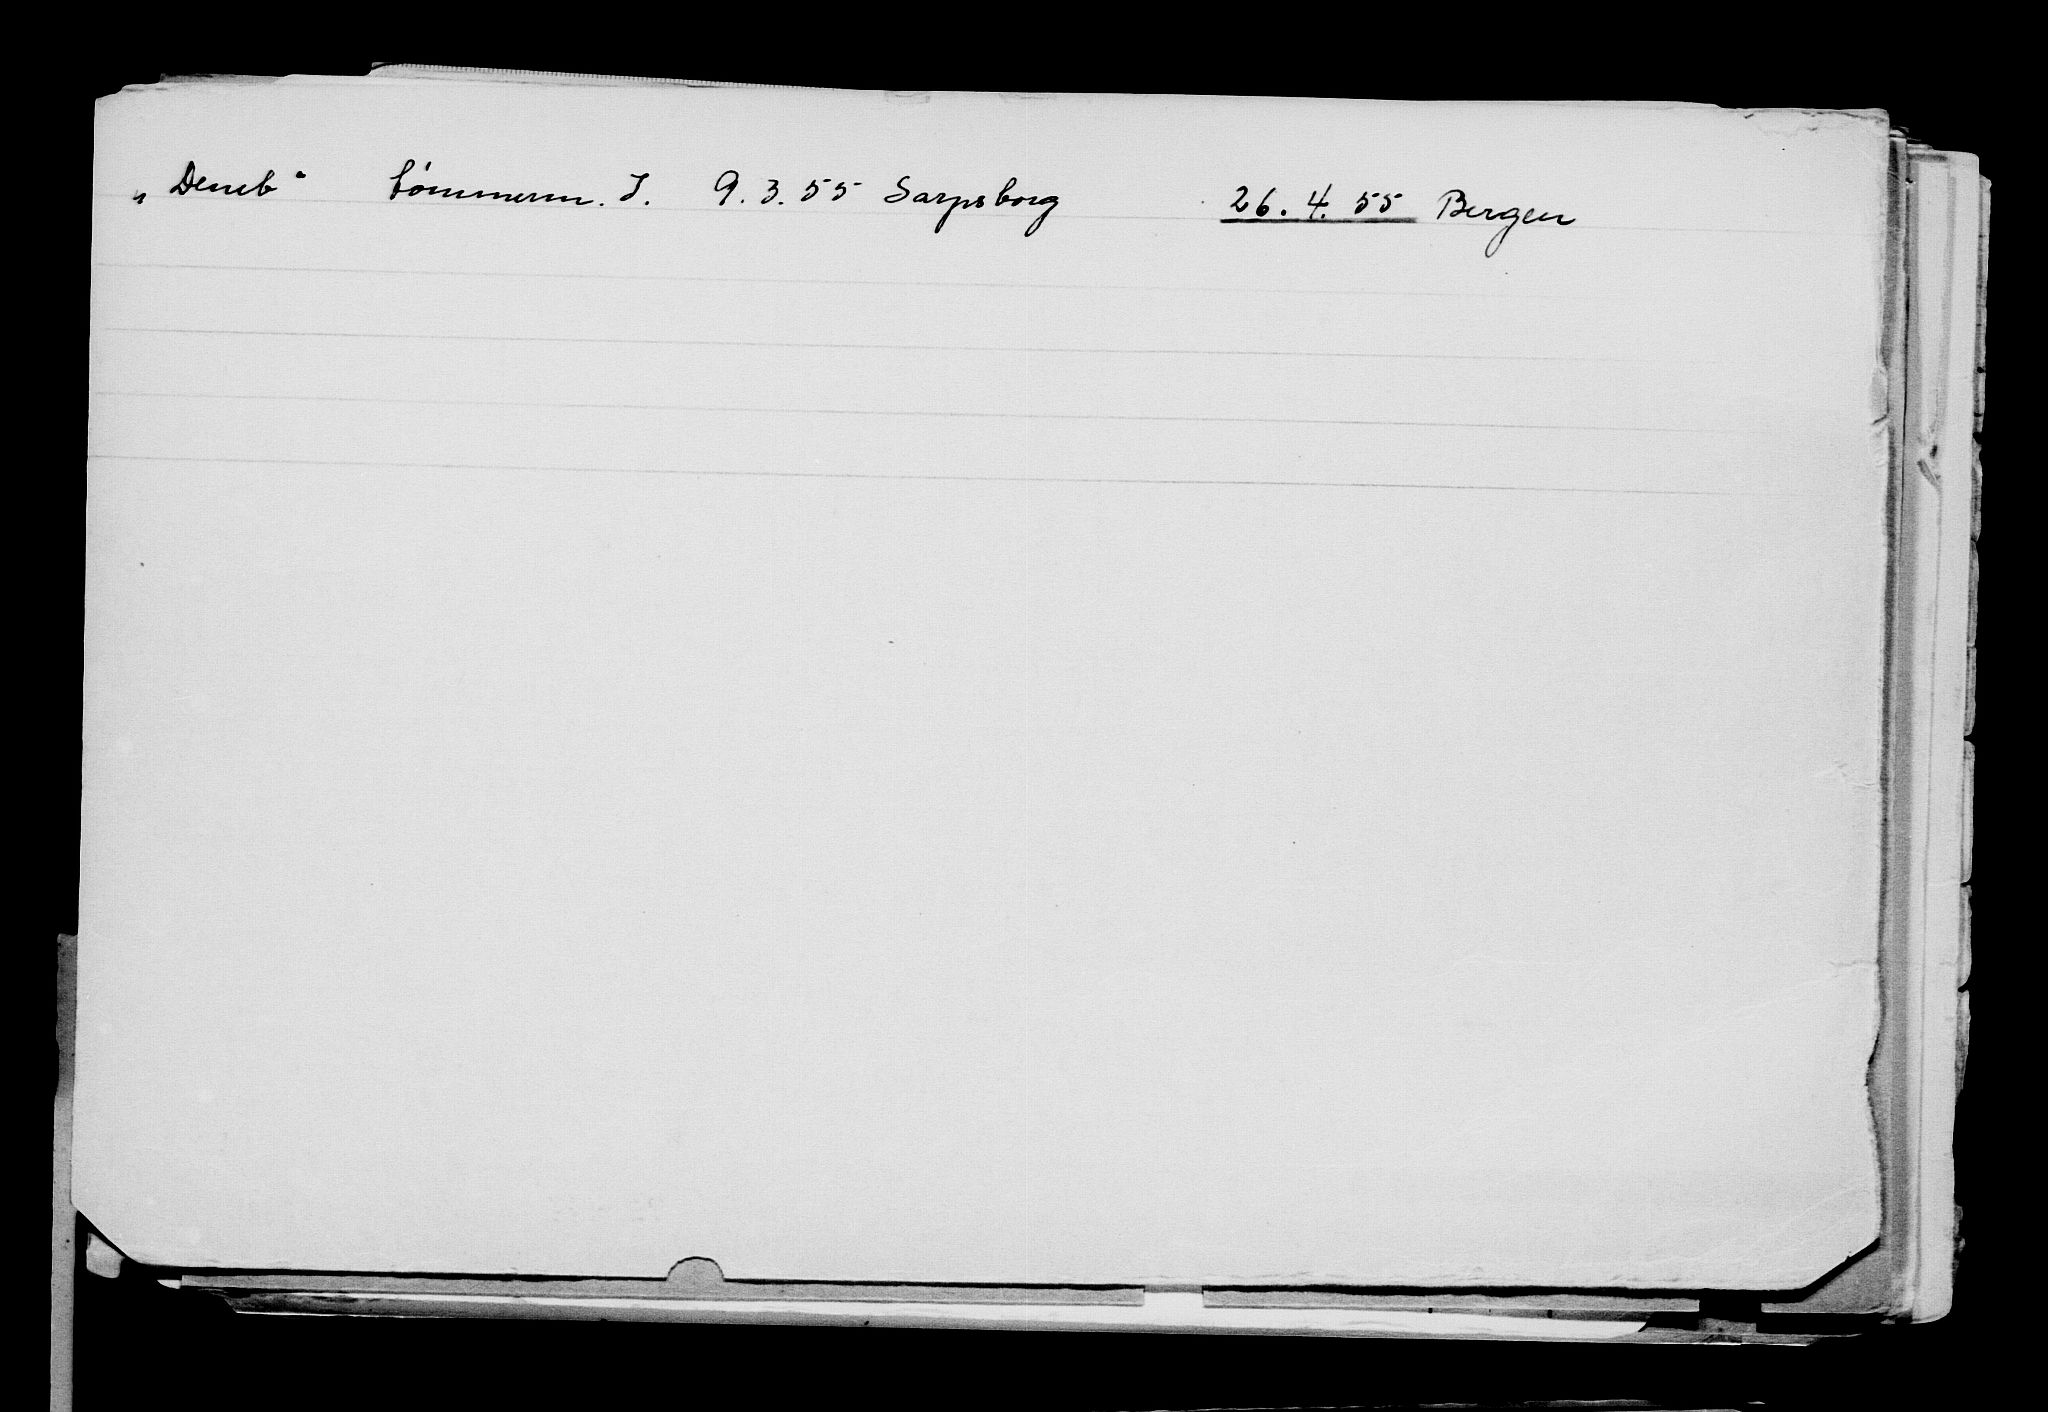 „Deneb" tømmerm. I. 9.3.55 Sarpsborg 26.4.55 Bergen